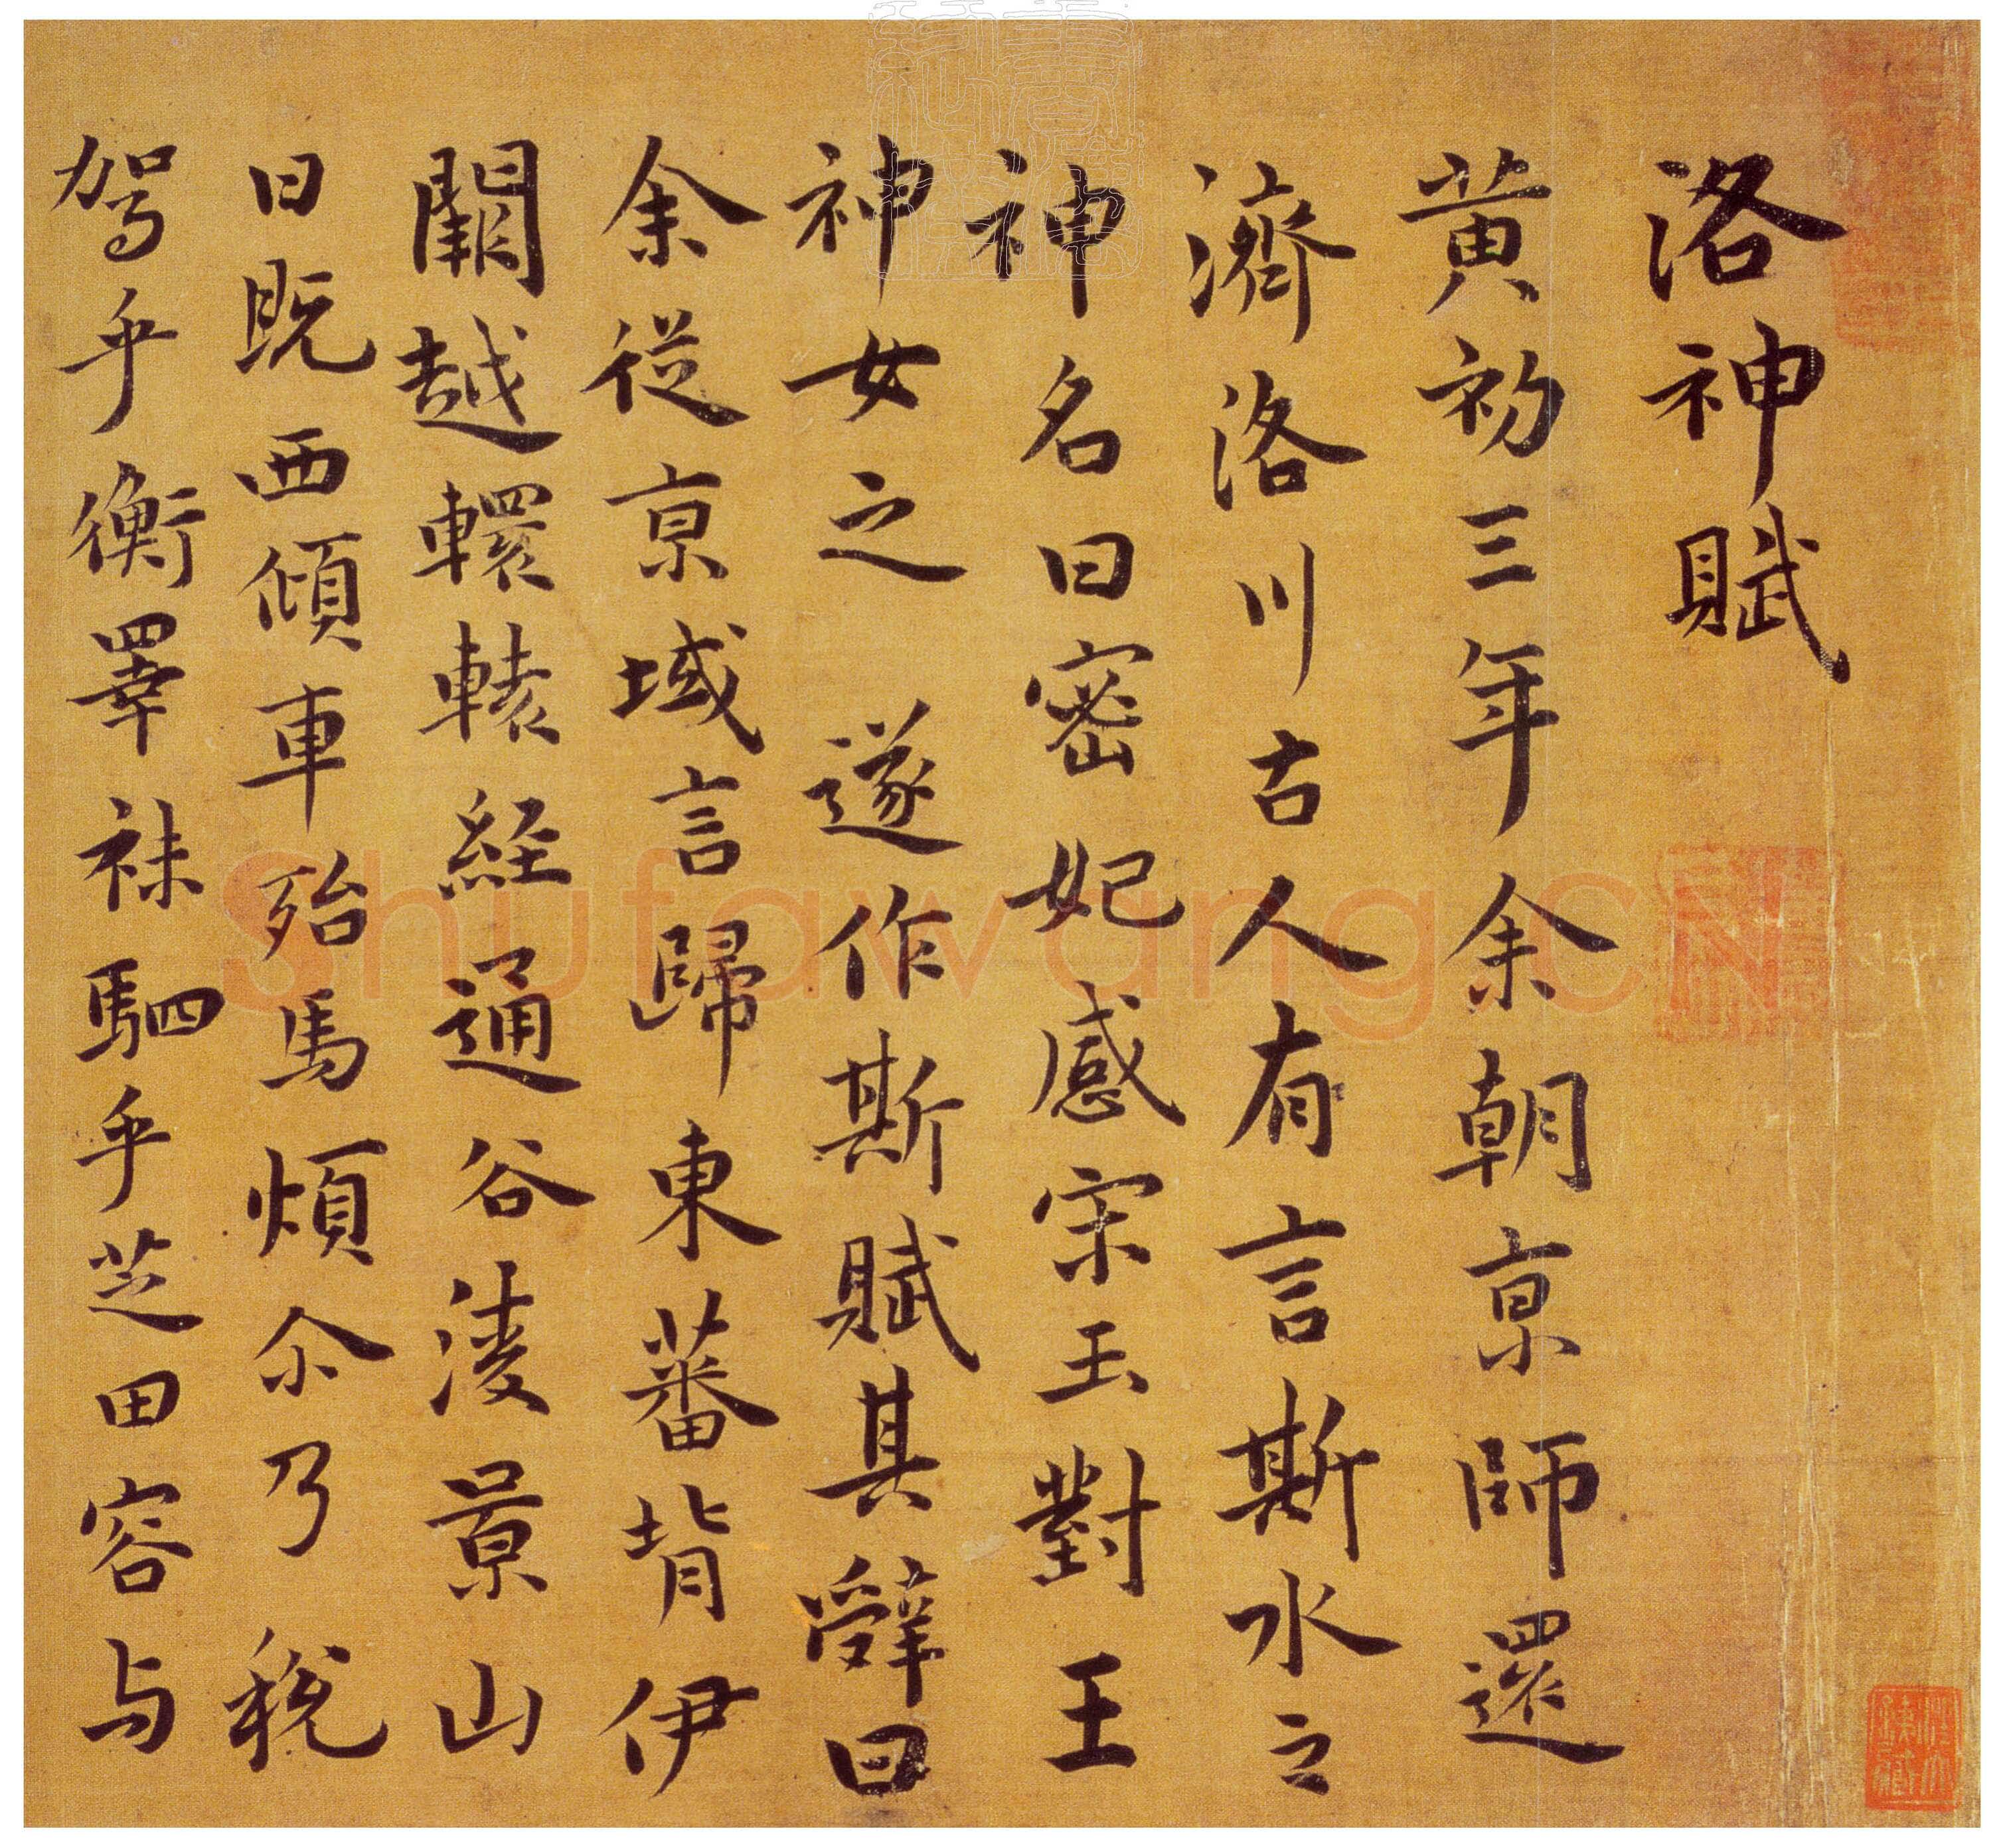 洛神賦
黄初三年余朝京師還
濟洛川古人有言斯水之
神名曰宓妃感宋玉對王
神女之遂作斯賦其辭曰
余從京域言歸東蕃背伊
闕越轘轅經通谷淩景山
日既西傾車殆馬煩尒乃税
駕乎衡睪袜駟乎芝田容与
Shufawang.CN